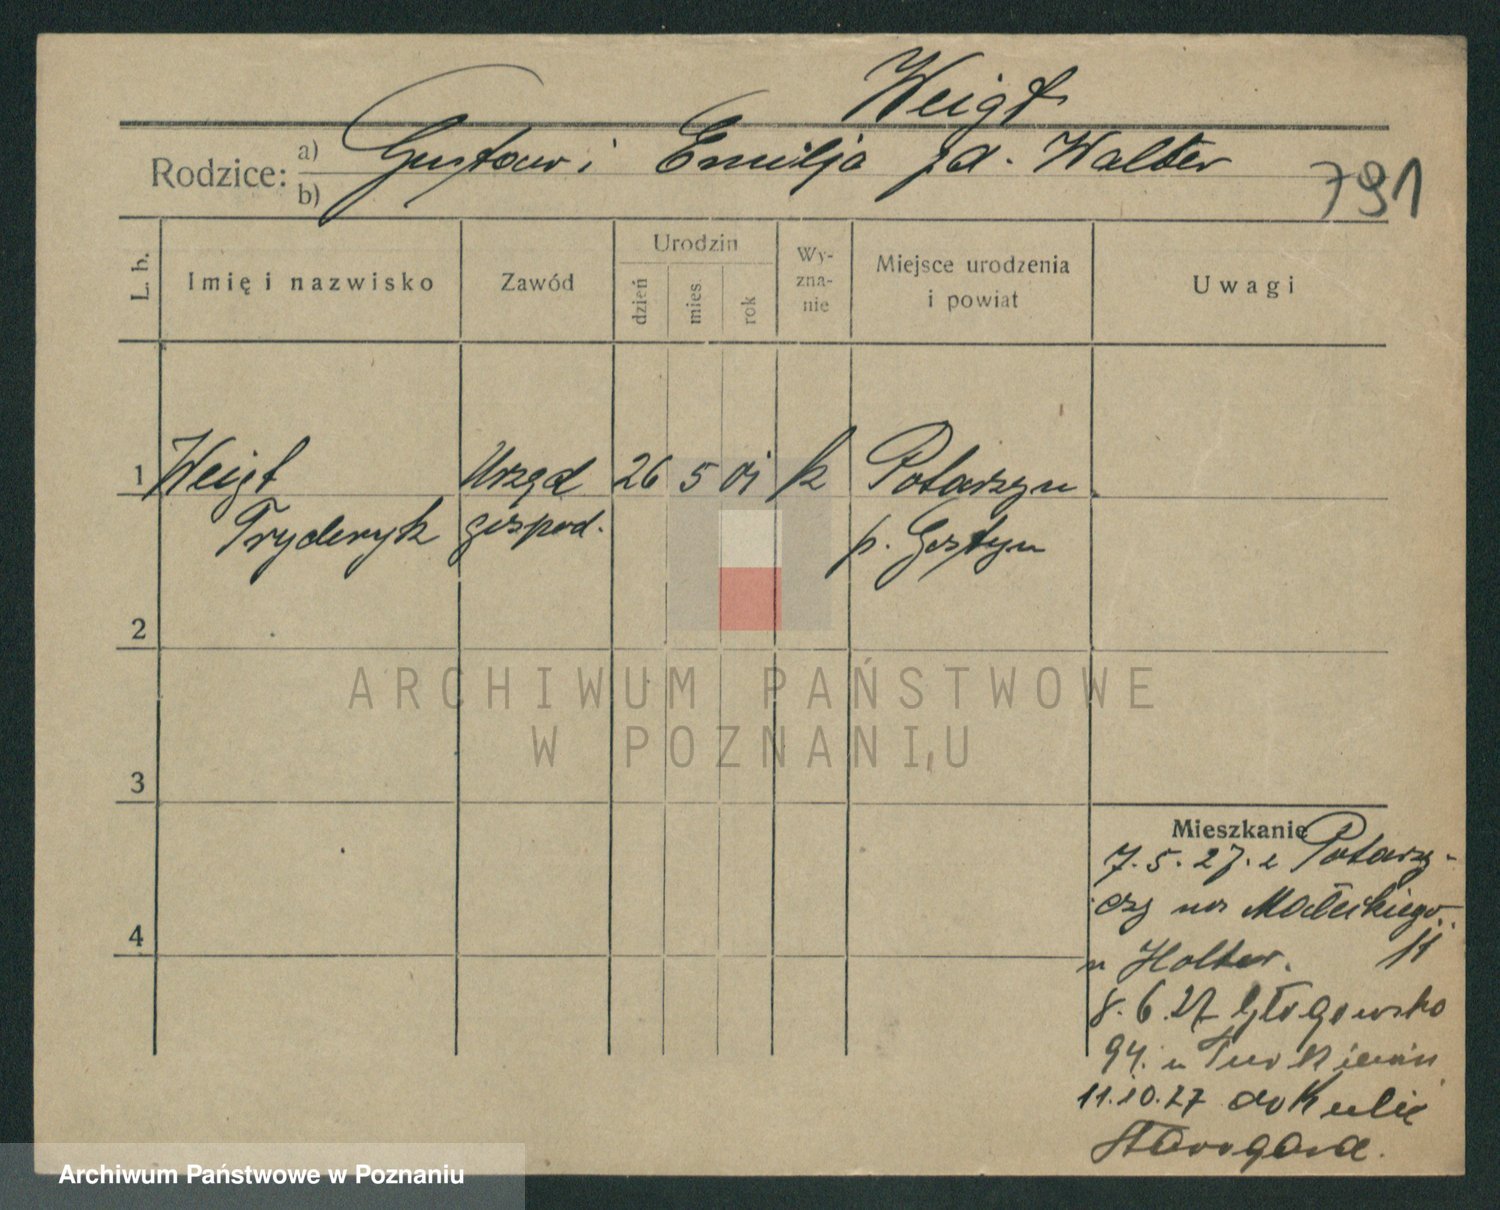 Weigt
Rodzice: a) Gustaw i Emilja zd. Walter
b)
791
L. b.
Imię i nazwisko
Zawód
Urodzin
dzień
mies.
rok
Wy-
zna-
nie
Miejsce urodzenia
i powiat
Uwagi
1 Weigt Urzęd 26 5 01 k Potarzyn
Fryderyk gospod. p. Gostyn
2
3
4
Mieszkanie
7.5.27. z Potarzy-
czy na Małeckiego
11
u Holter.
8.6.27 Głogowska
94. u
11.10.27 do
Starogard.
ARCHIWUM PAŃSTWOWE
W POZNANIU
Archiwum Państwowe w Poznaniu